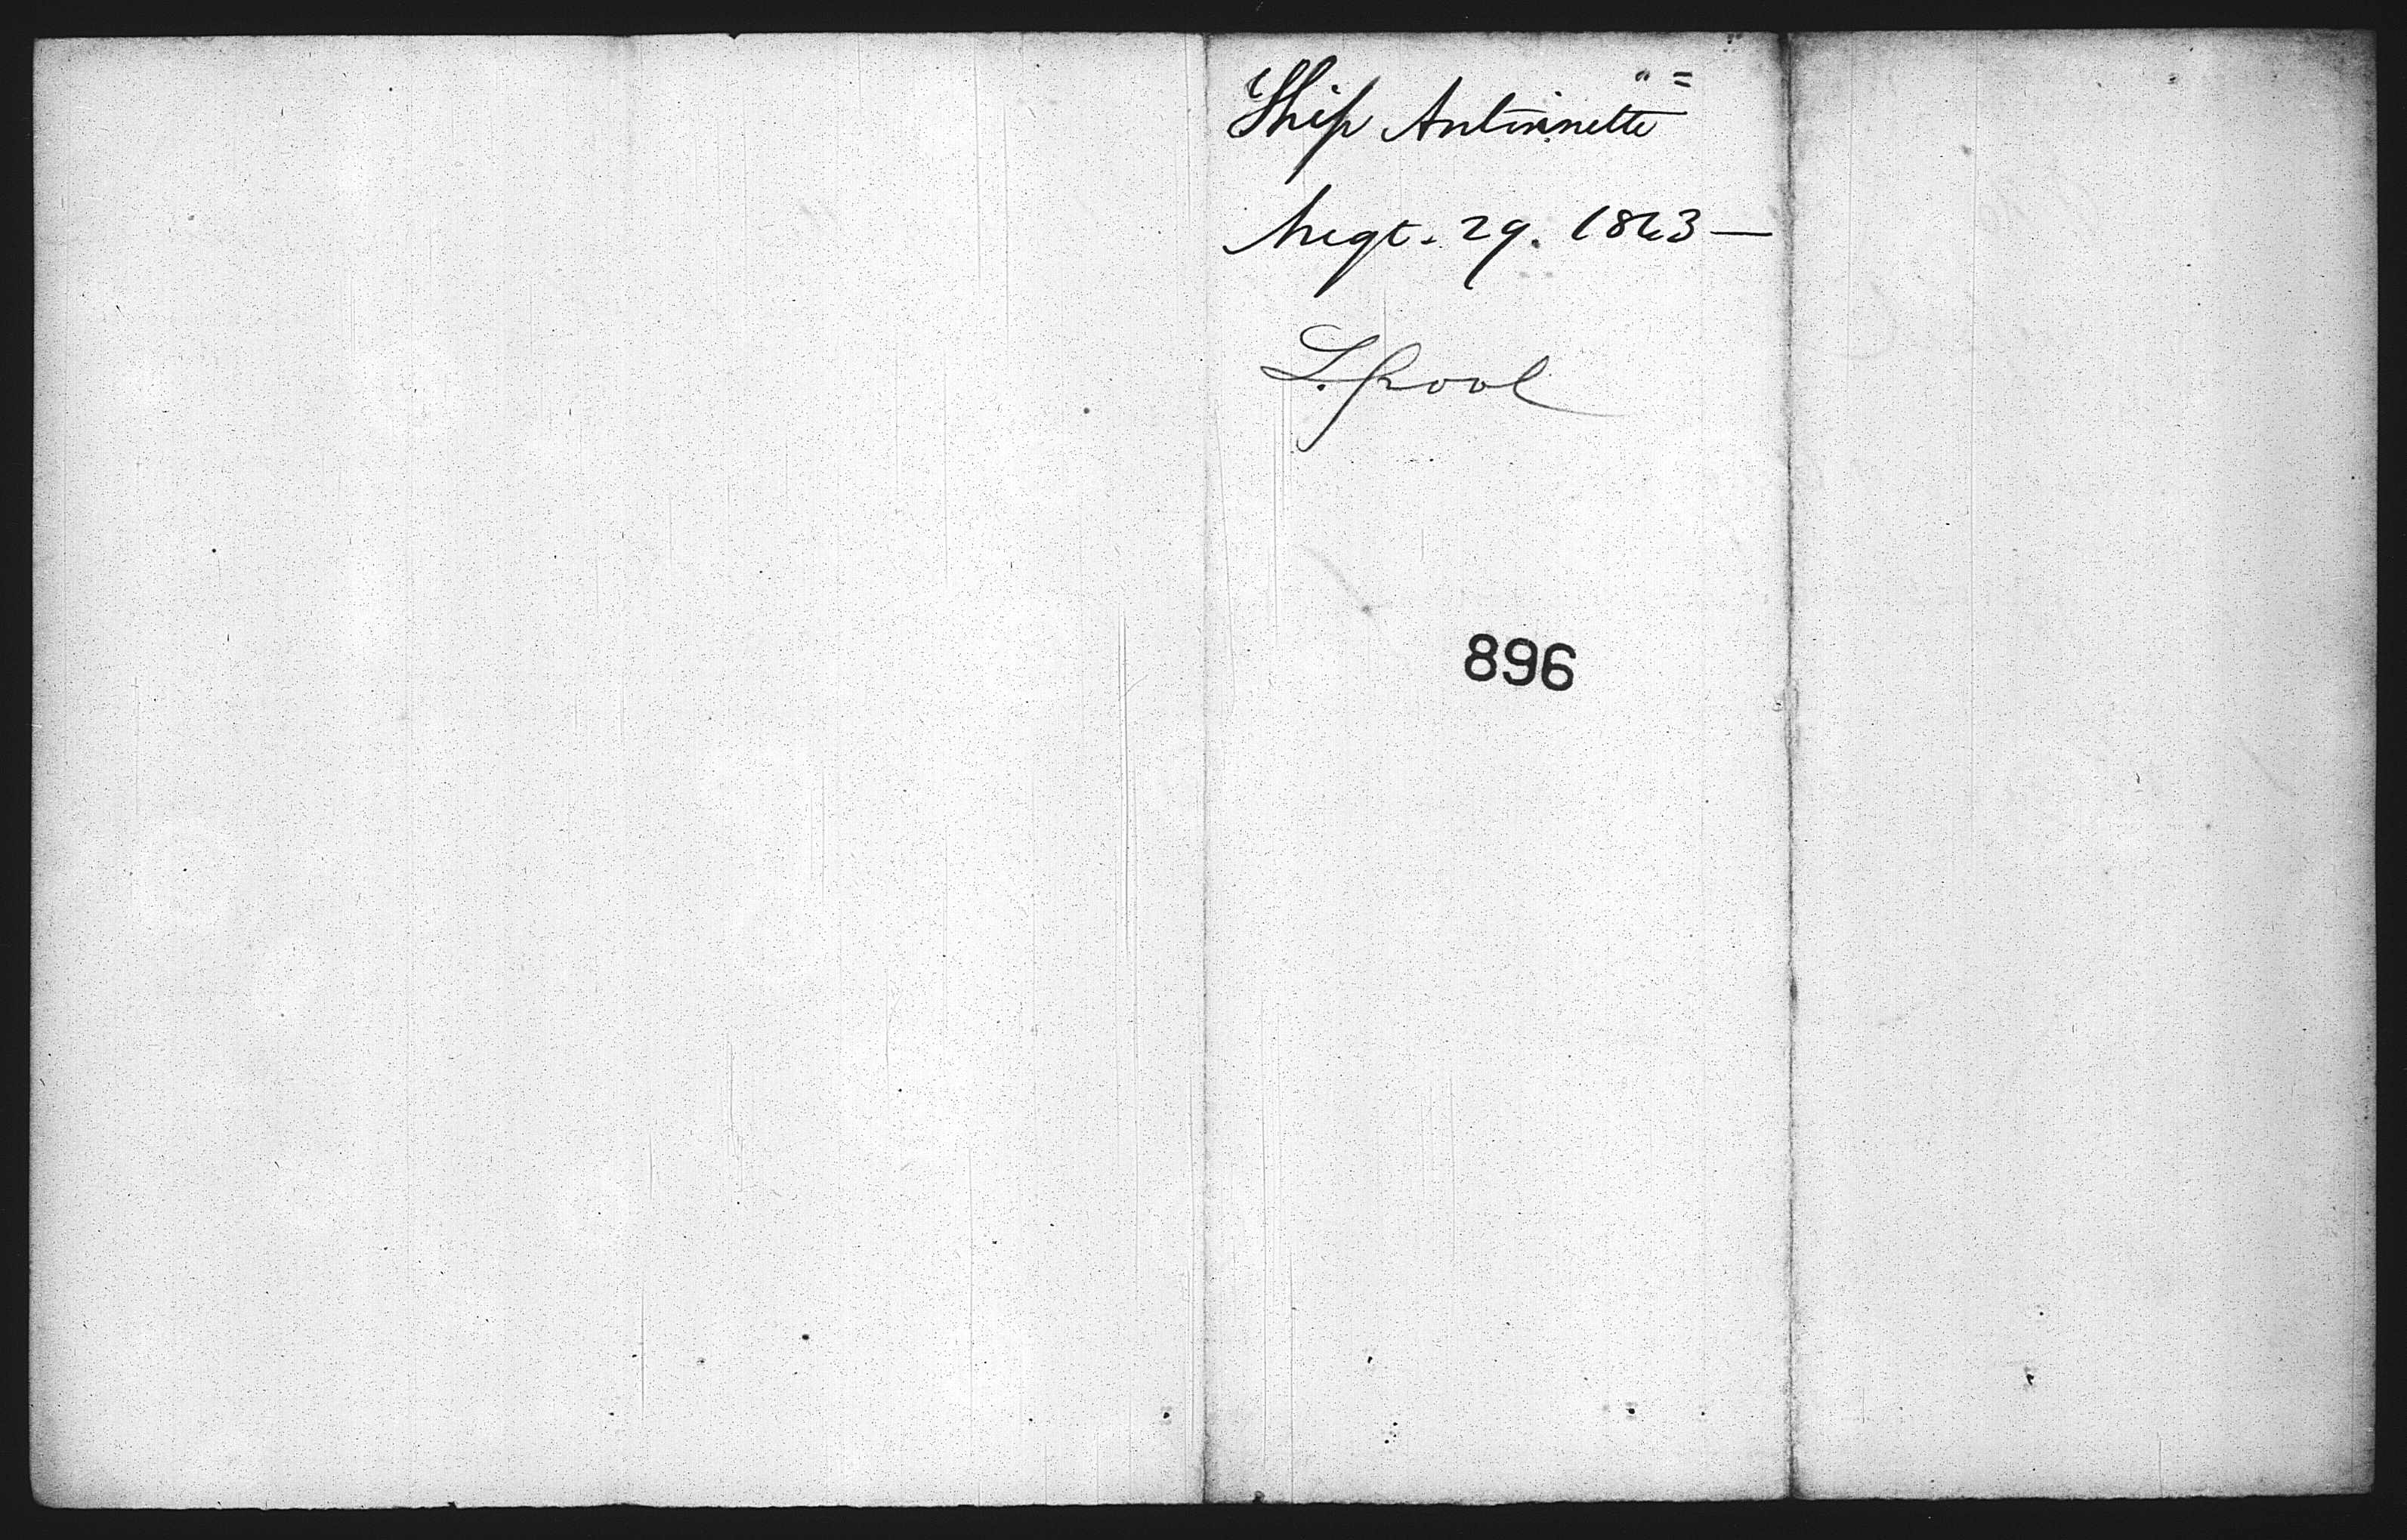 Ship Antoinette
Augt. 29. 1863 —
L.pool
896